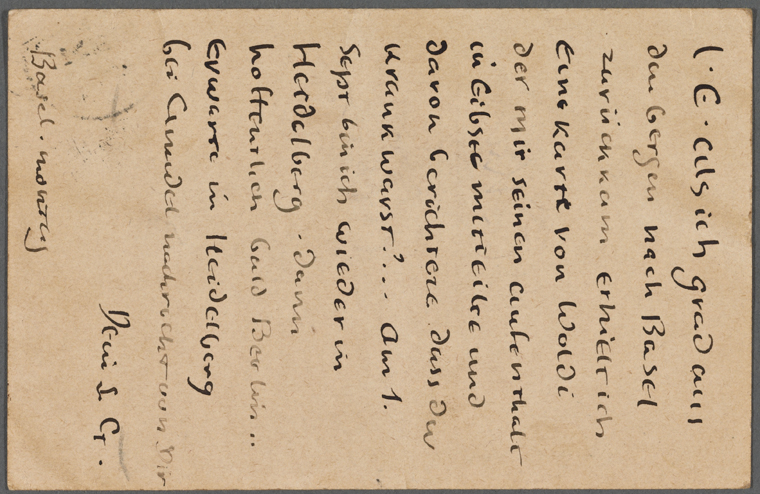 l. E. als ich grad aus
den bergen nach Basel
zurückkam erhielt ich
eine karte von Woldi
der mir seinen aufenthalt
in Gibswe mitteilte und
davon berichtete dass du
krank warst?... Am 1.
Sept bin ich wieder in
Heidelberg. dann
hoffentlich bald Berlin..
Erwarte in Heidelberg
bei nachricht von Dir
Dein S. G.
Basel. montag